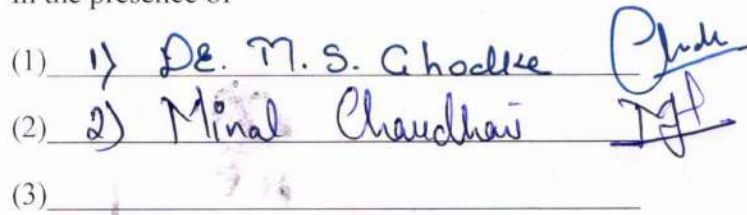 In the presence of
(1) 1) DR. M. S. Ghodke
(2) 2) Minal Chaudhari
(3)